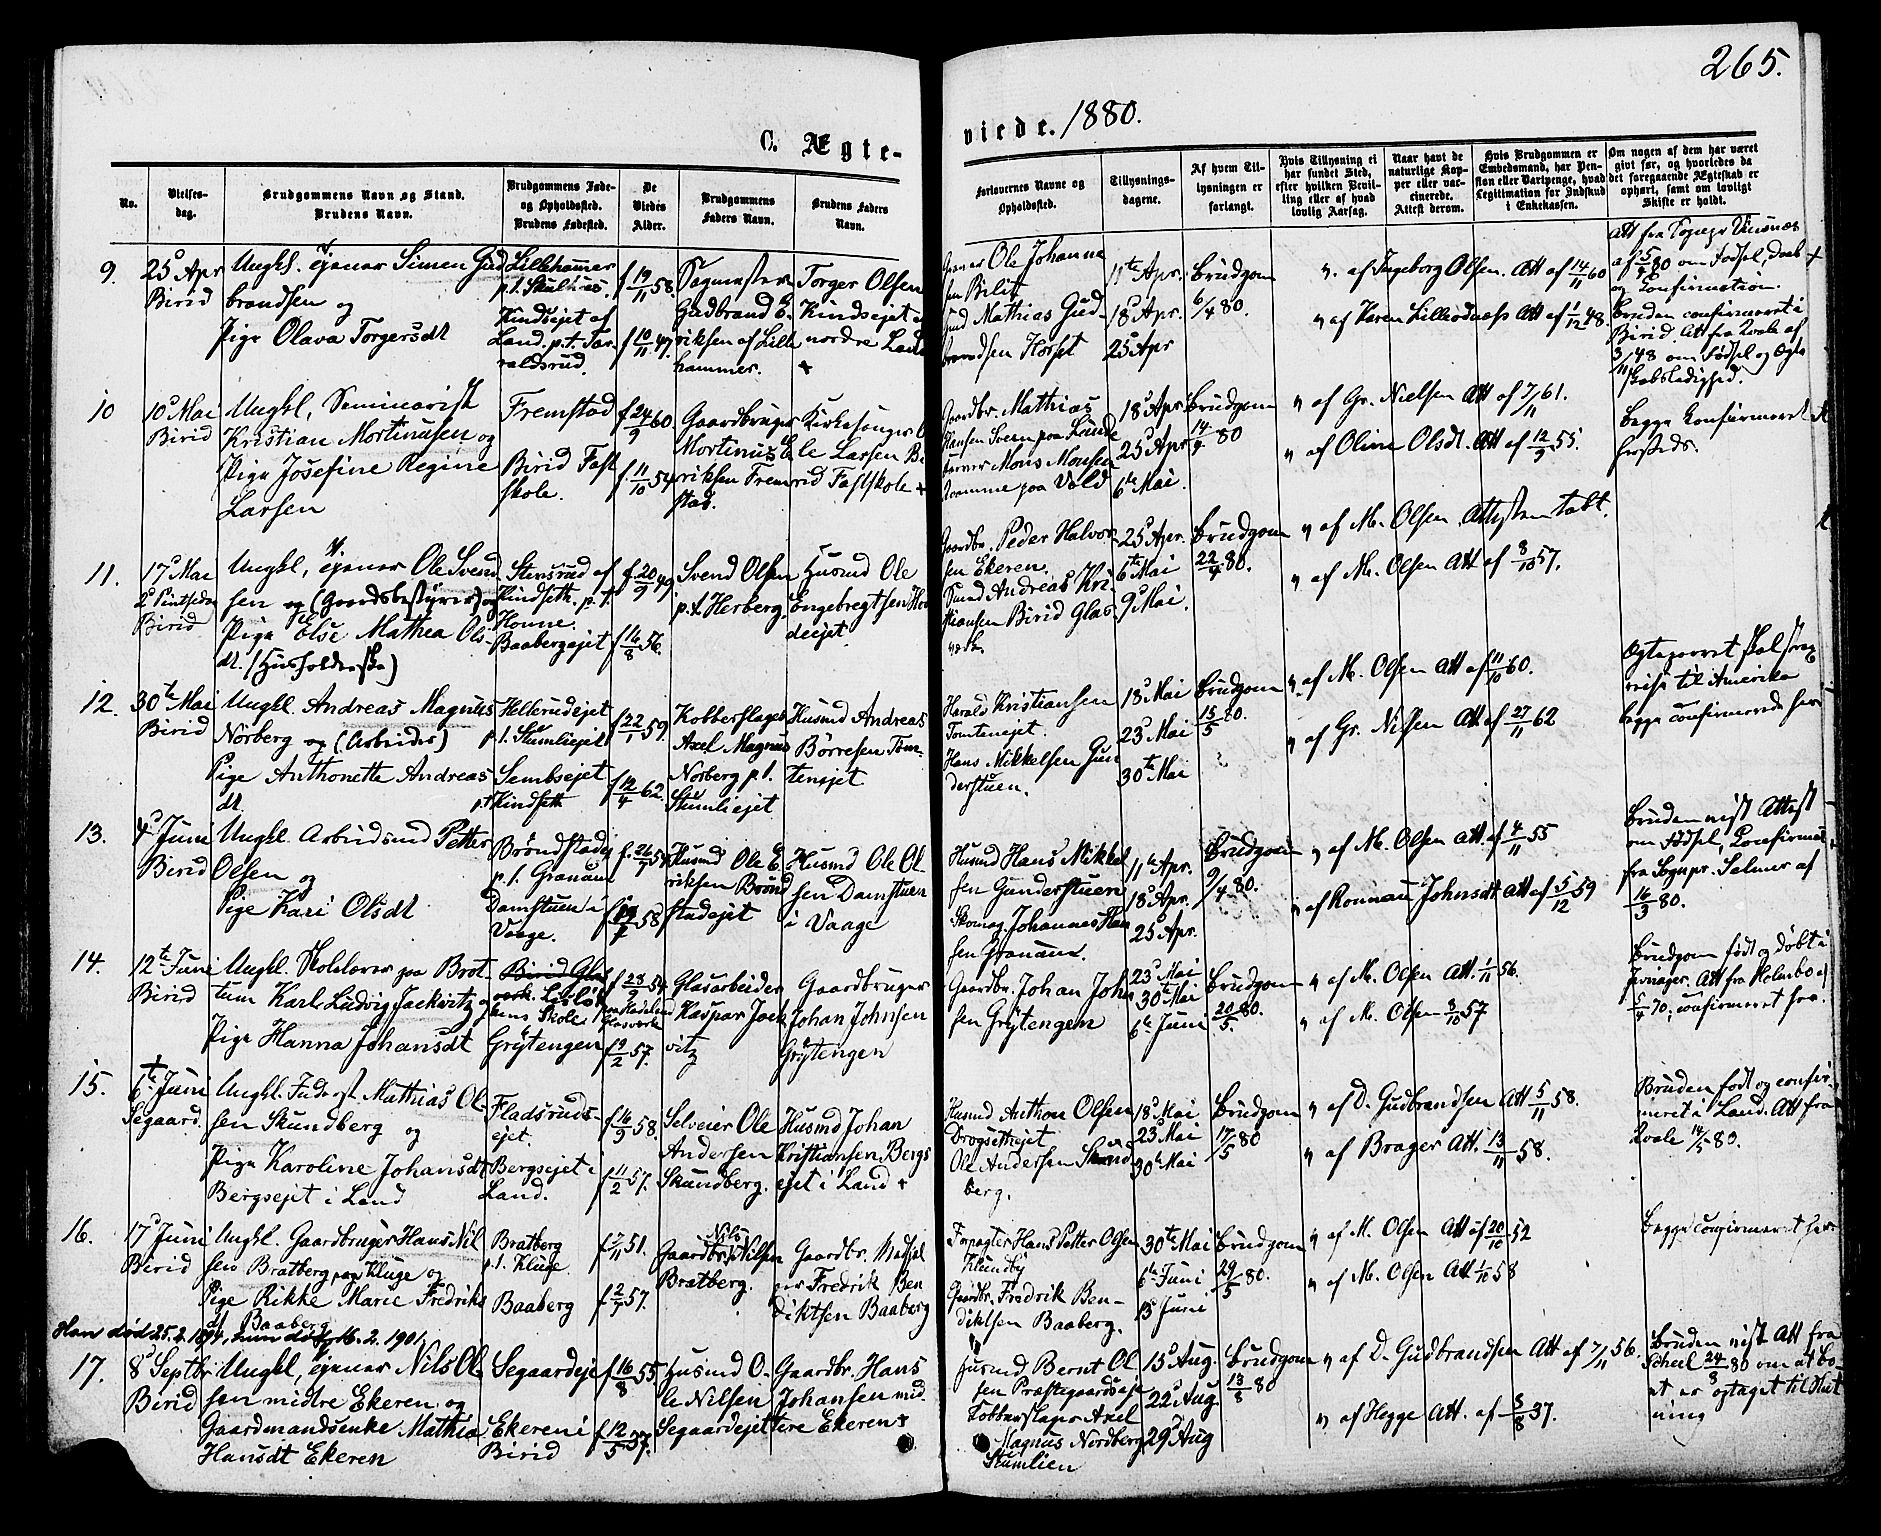 265.
C. Ægte-
viede. 1880.
No.
Vielses-
dag.
Brudgommens Navn og Stand.
Brudens Navn.
Brudgommens Føde-
og Opholdssted.
Brudens Fødested.
De
Viedes
Alder.
Brudgommens
Faders Navn.
Brudens Faders
Navn.
Forlovernes Navne og
Opholdssted.
Tillysnings-
dagene.
Af hvem Til-
lysningen er
forlangt.
Hvis Tillysning ei
har fundet Sted,
efter hvilken Bevil-
ling eller af hvad
lovlig Aarsag.
Naar havt de
naturlige Kop-
per eller vac-
cinerede.
Attest derom.
Hvis Brudgommen er
Embedsmand, har Pen-
sion eller Vartpenge, hvad
Legitimation for Indskud
i Enkekassen.
Om nogen af dem har været
givt før, og hvorledes da
det foregaaende Ægteskab er
ophørt, samt om lovligt
Skifte er holdt.
9. 25d Apr
Birid
Ungkl. Tjener Simen Gud
brandsen og
Pige Olava Torgersdt
Lillehammer
Kindsejet af
Land. p.t. Tor
valdsrud.
f 19/11 58.
f 10/11 47.
Gudbrand E-
riksen af Lille
hammer.
Torger Olsen
Kindsejet
nordre Land
+
Ole Johanne
sen Bilit
Gud Mathias Gud-
brandsen Horset
11te Apr.
18d Apr.
25d Apr
Brudgom
6/4 80.
" af Ingeborg Olsen. Att af 14/11 60
" af Karen Lillesdnæss Att af 1/12 48.
Att fra
af 5/4 80 om Fødsel, Daab +
og Confirmation.
Bruden confirmeret i
Birid. Att fra Kvale af
3/11 48 om Fødsel og Ægte
skabsledighed.
10 10d Mai
Birid
Ungkl, Seminarist
Kristian Mortinusen og
Pige Josefine Regine
Larsen
Fremstad
Birid Fast
skole.
f 24/9 60
f. 11/10 54
Gaardbruger
Mortinus E
riksen Frem
stad.
Kirkesanger O
le Larsen Bi
rid Fastskole +
Gaardbr. Mathias
Hansen Sveen paa Lunde
Mons Monsen
paa Vold
18d Apr
25d Apr
6te Mai.
Brudgom
14/4 80
" af Gr. Nielsen Att af 7/11 61.
" af Oline Olsdt. Att af 12/9 55.
Begge Konfirmeret
hersteds.
11. 17d Mai
2d Pintsedag
Birid
Ungkl, Tjener Ole Svend
sen og (Gaardsbestyrer) og
Pige Else Mathea Ols-
dt. (Husholderske)
Stensrud af
Kindseth. p.t.
Honne.
Baabergejet
f. 20/9 49
f 16/8 56.
Svend Olsen
p.t. Herberg.
Husmd Ole
Engebregtsen
deejet
Gaardbr. Peder Halvor-
sen Ekeren.
Husmd Andreas Kri
stiansen Birid Glas
værk
25d Apr.
6te Mai
9d Mai.
Brudgom
22/4 80.
" af M. Olsen. Attesten tabt.
" af M. Olsen Att af 8/10 57.
12. 30te Mai
Birid
Ungkl. Andreas Magnus
Norberg og (Arbeider)
Pige Anthonette Andreas
dt.
Hellerudejet
p.t. Stumliejet
Sembsejet
p.t. Kindseth
f 22/1 59.
f 12/4 62.
Kobberslager
Axel Magnus
Norberg p.t.
Stumliejet
Husmd Andreas
Børresen Tom-
tensejet
Harald Kristiansen
Tomtenejet.
Hans Mikkelsen Gun
derstuen.
18d Mai
23d Mai
30te Mai
Brudgom
15/5 80.
" af M. Olsen Att af 11/10 60.
" af Gr. Nilsen Att af 27/11 62
Ægteparret skal strax
reise til Amerika
begge confirmerede her
13. 4d Juni
Birid
Ungkl. Arbeidsmd Petter
Olsen og
Pige Kari Olsdt
Brøndstadej
p.t. Granum
Damstuen i
Vaage.
f. 26/7 54
f 19/7 58
Husmd Ole E
riksen Brønd
stadejet
Husmd Ole Ol
sen Damstuen
i Vaage
Husmd Hans Mikkel
sen Gunderstuen
Skomag. Johannes Han
sen Granum.
11te Apr.
18d Apr.
25d Apr.
Brudgom
9/4 80.
" af M. Olsen Att af 4/11 55
" af Ronnau Johnsdt Att af 5/12 59
Bruden vist Attest
om Fødsel, Confirmat
fra Sognepr. Selmer af
16/3 80.
14. 12te Juni
Birid
Ungkl. Skolelærer paa Brot
tum Karl Ludvig Jackvitz og
Pige Hanna Johansdt
Birid Glas
værk.
Grytengen
f 28/9 54
f 9/2 57.
Glasarbeider
Kaspar Jack
vitz
Gaardbruger
Johan Johnsen
Grytengen
Gaardbr. Johan John
sen Grytengen
23d Mai
30te Mai
6te Juni
Brudgom
20/5 80.
" af M. Olsen Att. 1/11 56.
" af M. Olsen 8/10 57
Brudgom født og døbt i
Jevnager. Att fra Holmboe af
5/4 70; confirmeret her.
15. 6te Juni
Segaard.
Ungkl. Inderst Mathias Ol-
sen Skundberg og
Pige Karoline Johansdt
Bergsejet i Land
Fladsruds-
ejet.
Bergsejet i
Land.
f 16/9 58.
f 11/2 57.
Selveier Ole
Andersen
Skundberg.
Husmd Johan
Kristiansen Bergs
ejet i Land +
Husmd Anthon Olsen
Drogsethejet
Ole Andersen Skund
berg.
18d Mai
23d Mai
30te Mai
Brudgom
17/5 80
" af D. Gudbrandsen Att 5/11 58.
" af Brager Att. 13/11 58.
Bruden født og confir-
meret i Land. Att fra
Kvale 14/5 80.
16. 17d Juni
Birid
Ungkl. Gaardbruger Hans Nil
sen Bratberg paa Kluge og
Pige Rikke Marie Fredriks
dt Baaberg
Bratberg
p.t. Kluge.
Baaberg
f 7/11 51.
f 2/7 57.
Gaardbr. Nils Nilsen
Bratberg.
Gaardbr. Mathi
as Fredrik Ben
diktsen Baaberg
Forpagter Hans Petter Olsen
Klundby
Gaardbr. Fredrik Ben-
diktsen Baaberg.
30te Mai
6te Juni
13 Juni
Brudgom
29/5 80.
" af M. Olsen Att af 20/10 52
" af M. Olsen Att 1/10 58
Begge confirmeret her
Han død 25.2.1894, hun død 16.2.1901.
17. 8d Septbr
Birid
Ungkl, Tjener Nils Ol
sen midtre Ekeren og
Gaardmandsenke Mathia
Hansdt Ekeren
Segaardeje
Ekeren i
Birid
f 16/8 55
f 12/5 37.
Husmd O-
le Nilsen
Segaardejet
Gaardbr. Hans
Johansen mid
tre Ekeren +
Husmd Bernt Ol
sen Præstegaardseje
Kobberslager Axel
Magnus Nordberg
Stumlien
15d Aug.
22d Aug
29d Aug
Brudgom
13/8 80
" af D. Gudbrandsen Att af 7/11 56.
" af Hegge Att. af 3/8 37.
Bruden vist Att fra
Scheel 24/8 80 om at Bo-
et er optaget til Skif
tning